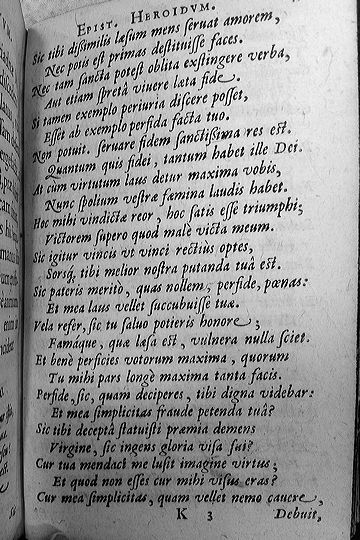 EPIST. HEROIDVM.
Sic tibi dissimilis læsum mens seruat amorem,
Nec potis est primas destituisse faces.
Nec tam sancta potest oblita exstingere verba,
Aut etiam spretâ viuere læta fide.
Si tamen exemplo periuria discere posset,
Esset ab exemplo perfida facta tuo.
Non potuit. seruare fidem sanctissima res est.
Quantum quis fidei, tantum habet ille Dei.
At cùm virtutum laus detur maxima vobis,
Nunc spolium vestræ fæmina laudis habet.
Hoc mihi vindictæ reor, hoc satis esse triumphi;
Victorem supero quod malè victa meum.
Sic igitur vincis vt vinci rectiùs optes,
Sorsq́, tibi melior nostra putanda tuâ est.
Sic pateris meritò, quas nollem, perfide, pœnas:
Et mea laus vellet succubuisse tuæ.
Vela refer, sic tu saluo potieris honore;
Famáque, quæ læsa est, vulnera nulla sciet.
Et benè perficies votorum maxima, quorum
Tu mihi pars longè maxima tanta facis.
Perfide, sic, quam deciperes, tibi digna videbar:
Et mea simplicitas fraude petenda tuâ?
Sic tibi deceptâ statuisti præmia demens
Virgine, sic ingens gloria visa fui?
Cur tua mendaci me lusit imagine virtus;
Et quod non esses cur mihi visus eras?
Cur mea simplicitas, quam vellet nemo cauere,
K 3 Debuit,